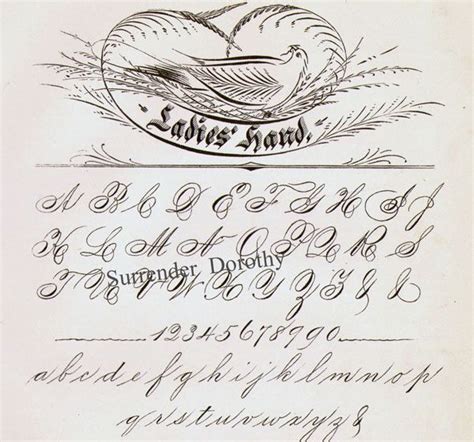 Ladies' Hand.
A B C D E F G H I J
K L M N O P Q R S
Surrender Dorothy
T U V W X Y Z & &
1234567890
a b c d e f g h i j k l m n o p
q r s t u v w x y z &